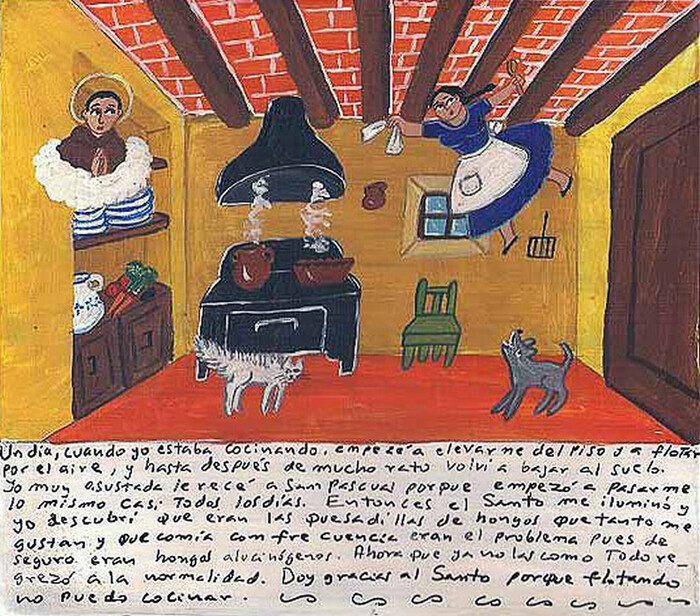 Un día, cuando yo estaba cocinando, empezé a elevarme del piso y a flotar
por el aire, y hasta después de mucho rato volví a bajar al suelo.
Yo muy asustada le recé a San Pascual porque empezó a pasarme
lo mismo casi todos los días. Entonces el Santo me iluminó y
yo descubrí que eran las quesadillas de hongos que tanto me
gustan y que comía con frecuencia eran el problema pues de
seguro eran hongos alucinógenos. Ahora que ya no las como todo re-
grezó a la normalidad. Doy gracias al Santo porque flotando
no puedo cocinar.